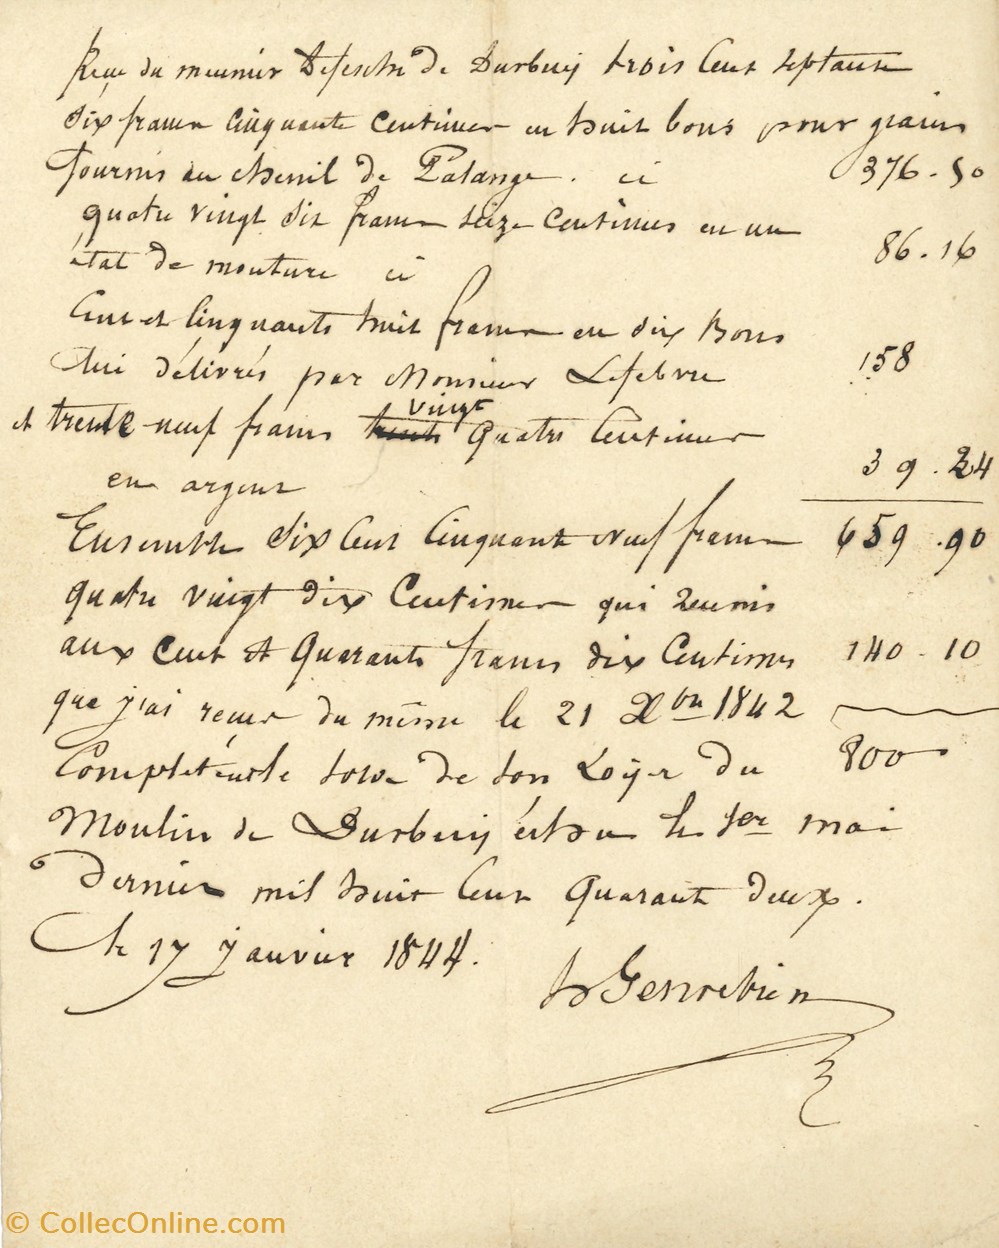 Reçu du meunier Defesche de Durbuy trois cent septante
six francs cinquante centimes en huit bons pour grains
fournis au chenil de Palange. ci 376.50
quatre vingt six francs seize centimes en un
état de mouture ci 86.16
Cent et cinquante huit francs en dix Bons
lui délivrés par Monsieur Lefebvre 158
et trente-neuf francs vingt quatre Centimes
en argent 39.24
Ensemble Six Cent Cinquante Neuf francs 659.90
quatre vingt dix Centimes qui reunis
aux Cent et Quarante francs dix Centimes 140.10
que j'ai reçus du même le 21 Xbre 1842
Complètent le de son Loyer du 800
Moulin de Durbuy échu le 1er mai
dernier mil huit Cent Quarante deux.
Le 17 janvier 1844.
© CollecOnline.com